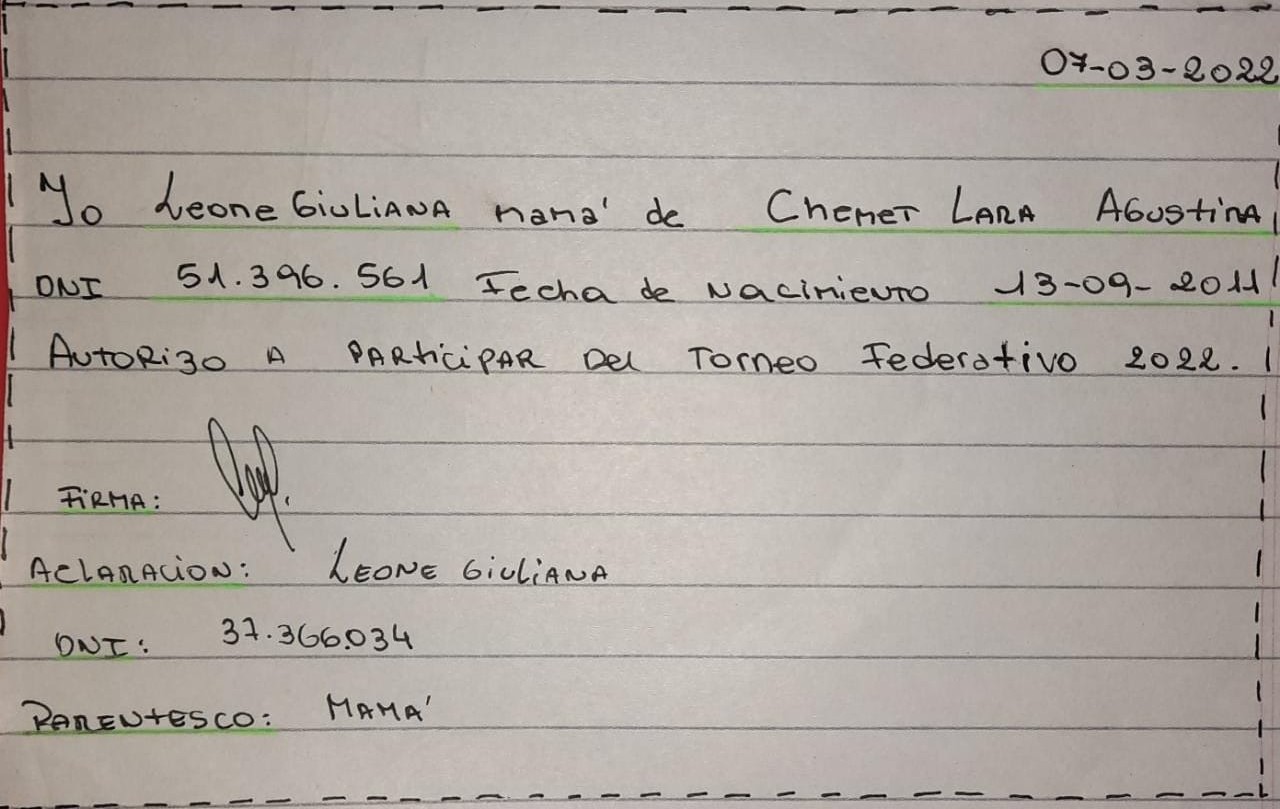 07-03-2022
Yo Leone GiULiANA mamá de Chemet LARA AGustina
DNI 51.396.561 Fecha de Nacimiento 13-09-2011
AUTORIZO A PARticiPAR Del Torneo Federativo 2022.
FiRMA:
AClARACION: LEONE GiuLiANA
DNI: 37.366.034
PARENtESCO: MAMÁ